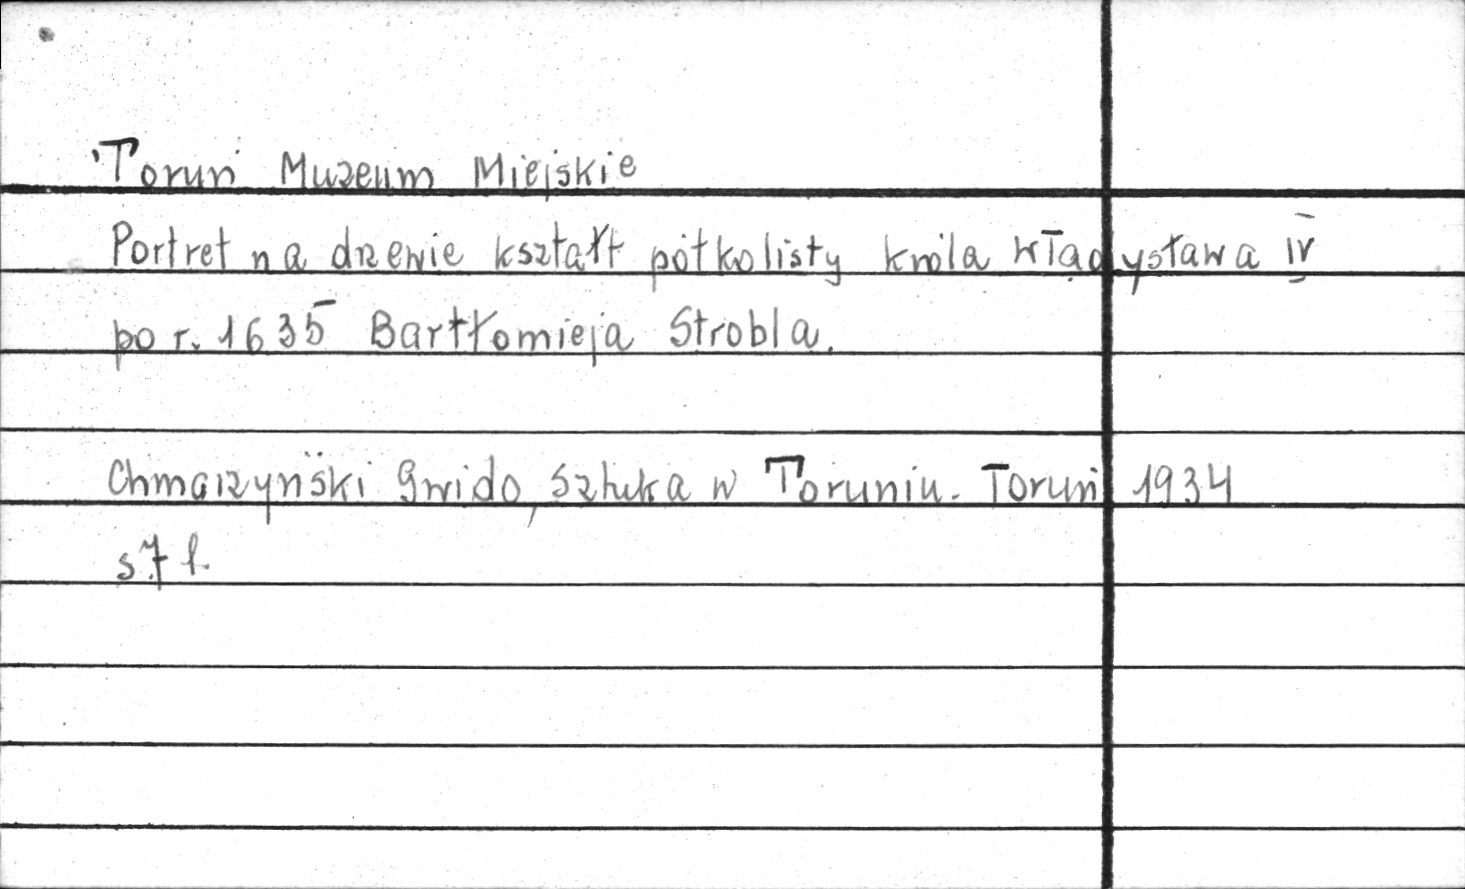 Toruń Muzeum Miejskie
Portret na drzewie kształt półkolisty króla Władysława IV
po r. 1635 Bartłomieja Strobla.
Chmarzyński Gwido, Sztuka w Toruniu. Toruń 1934
s.71.